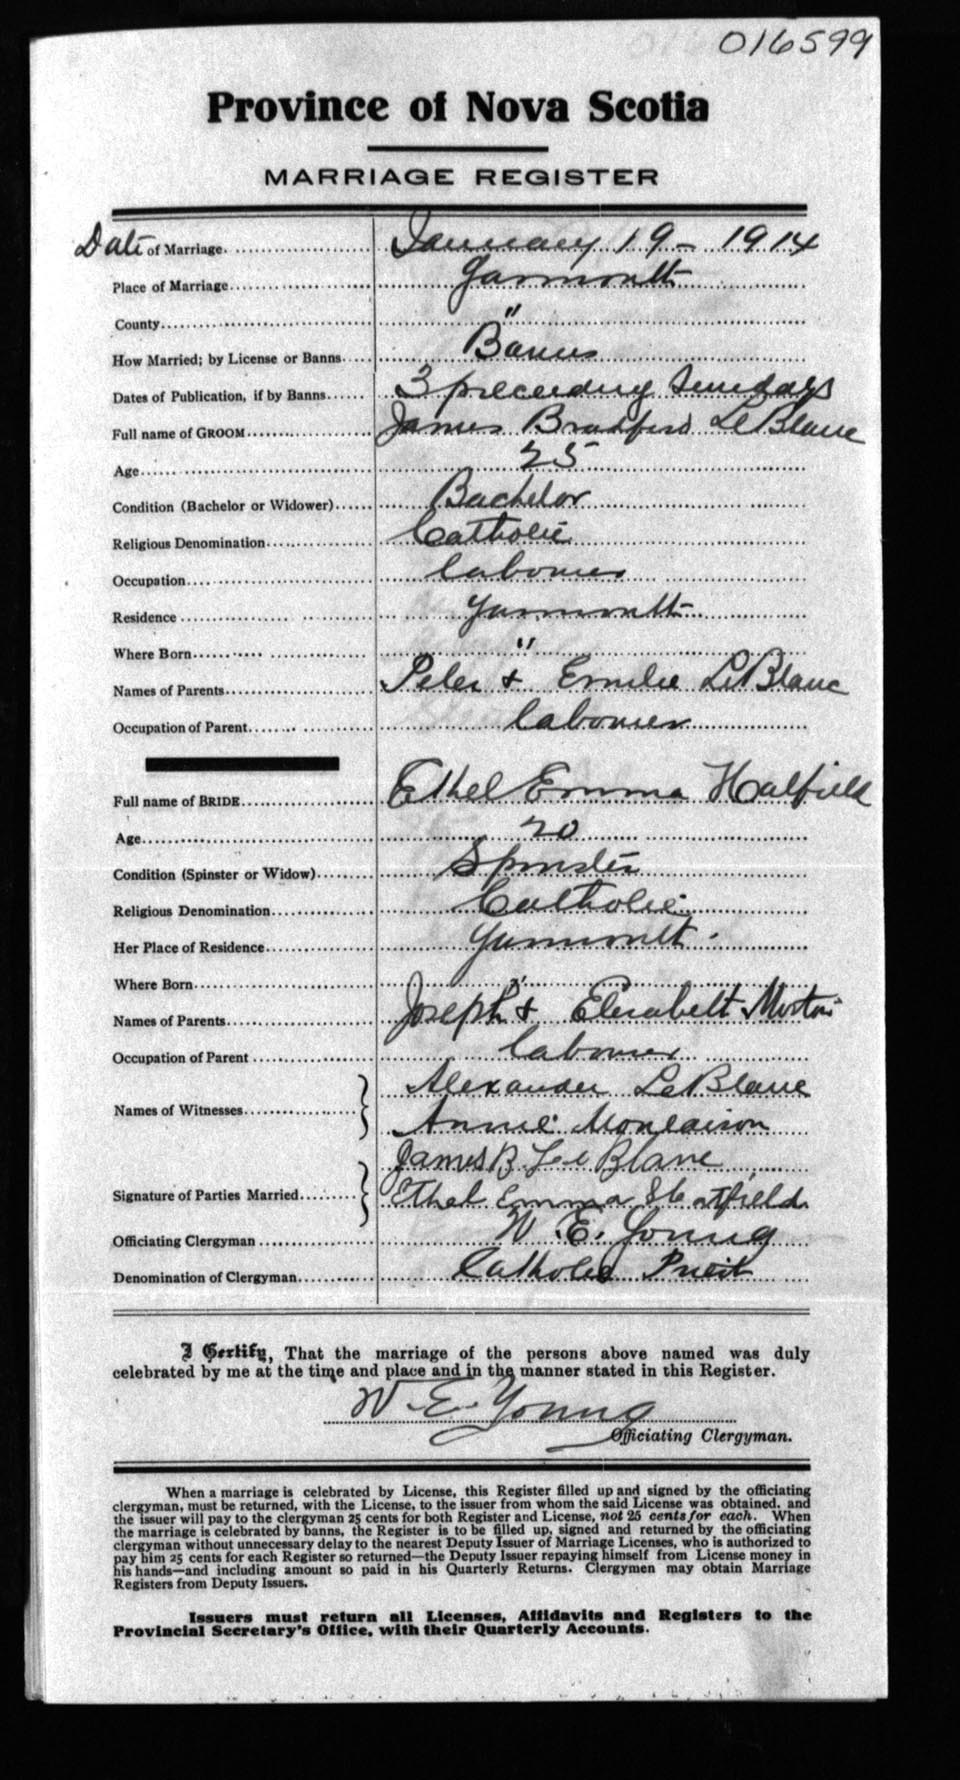 016599
Province of Nova Scotia
MARRIAGE REGISTER
Date of Marriage January 19 - 1914
Place of Marriage Yarmouth
County "
How Married; by License or Banns Banns
Dates of Publication, if by Banns 3 preceeding Sundays
Full name of GROOM James Bradford LeBlanc
Age 25
Condition (Bachelor or Widower) Bachelor
Religious Denomination Catholic
Occupation labourer
Residence Yarmouth
Where Born "
Names of Parents Peter & Emilie LeBlanc
Occupation of Parent labourer
Full name of BRIDE Ethel Emma Hatfield
Age 20
Condition (Spinster or Widow) Spinster
Religious Denomination Catholic
Her Place of Residence Yarmouth
Where Born "
Names of Parents Joseph & Elizabeth
Occupation of Parent labourer
Alexander LeBlanc
Names of Witnesses
Annie
James B LeBlanc
Signature of Parties Married
Ethel Emma Hatfield
Officiating Clergyman W. E. Young
Denomination of Clergyman Catholic Priest
I Certify, That the marriage of the persons above named was duly
celebrated by me at the time and place and in the manner stated in this Register.
W. E. Young
Officiating Clergyman.
When a marriage is celebrated by License, this Register filled up and signed by the officiating
clergyman, must be returned, with the License, to the issuer from whom the said License was obtained, and
the issuer will pay to the clergyman 25 cents for both Register and License, not 25 cents for each. When
the marriage is celebrated by banns, the Register is to be filled up, signed and returned by the officiating
clergyman without unnecessary delay to the nearest Deputy Issuer of Marriage Licenses, who is authorized to
pay him 25 cents for each Register so returned—the Deputy Issuer repaying himself from License money in
his hands—and including amount so paid in his Quarterly Returns. Clergymen may obtain Marriage
Registers from Deputy Issuers.
Issuers must return all Licenses, Affidavits and Registers to the
Provincial Secretary's Office, with their Quarterly Accounts.